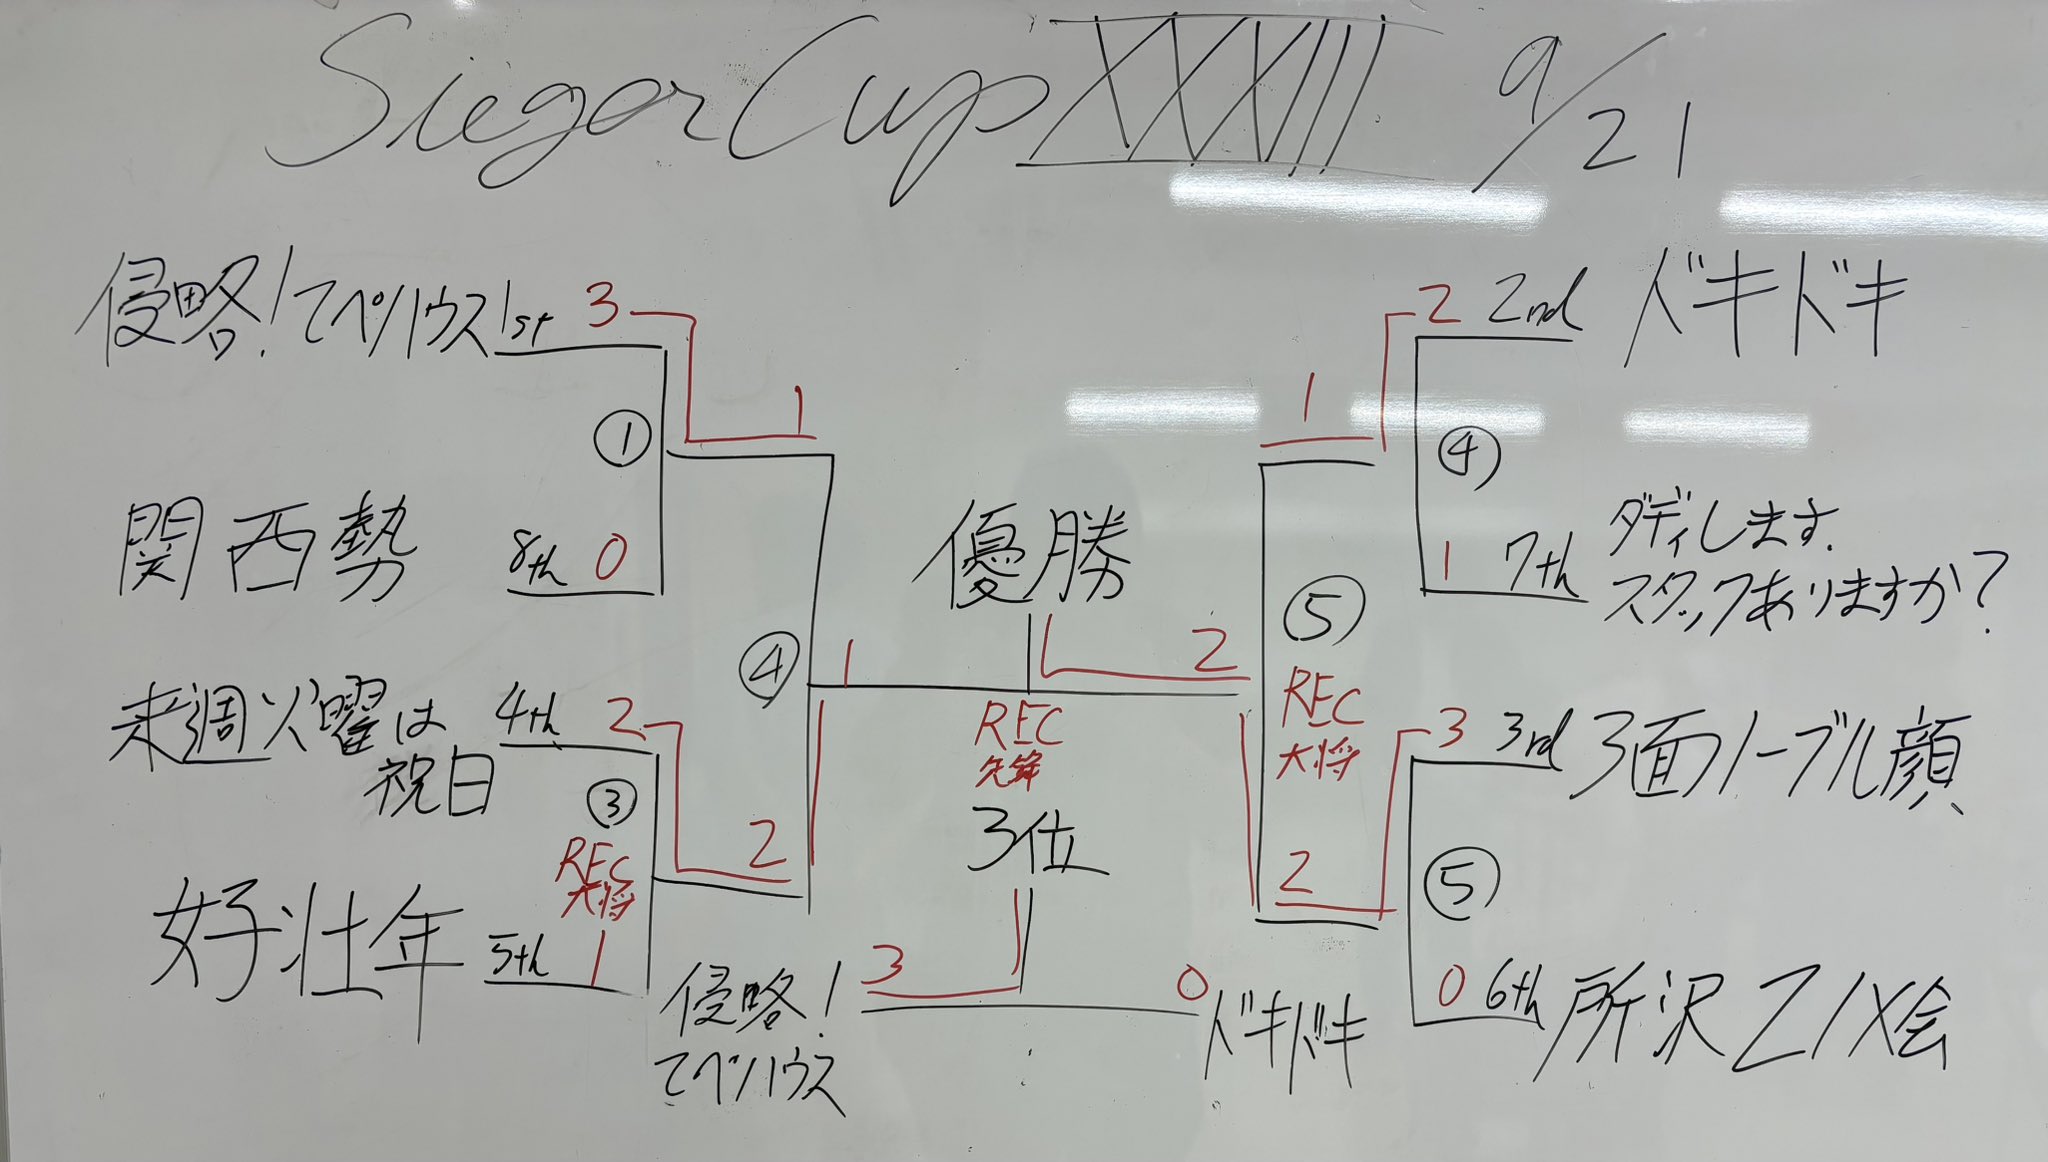 Sieger Cup XXXIII 9/21
侵略!てぺハウス 1st 3
1
関西勢 8th 0
①
来週火曜は
祝日
4th 2
③
REC
大将
好壮年 5th 1
2
④
1
優勝
2
REC
先鋒
3位
侵略!
てぺハウス
3
0
ドキドキ
2 2nd ドキドキ
1
④
1 7th ダディします.
スタックありますか?
⑤
REC
大将
3 3rd 3面ノーブル顔
2
⑤
0 6th 所沢Z/X会